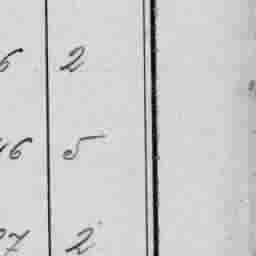 6 2
46 5
27 2